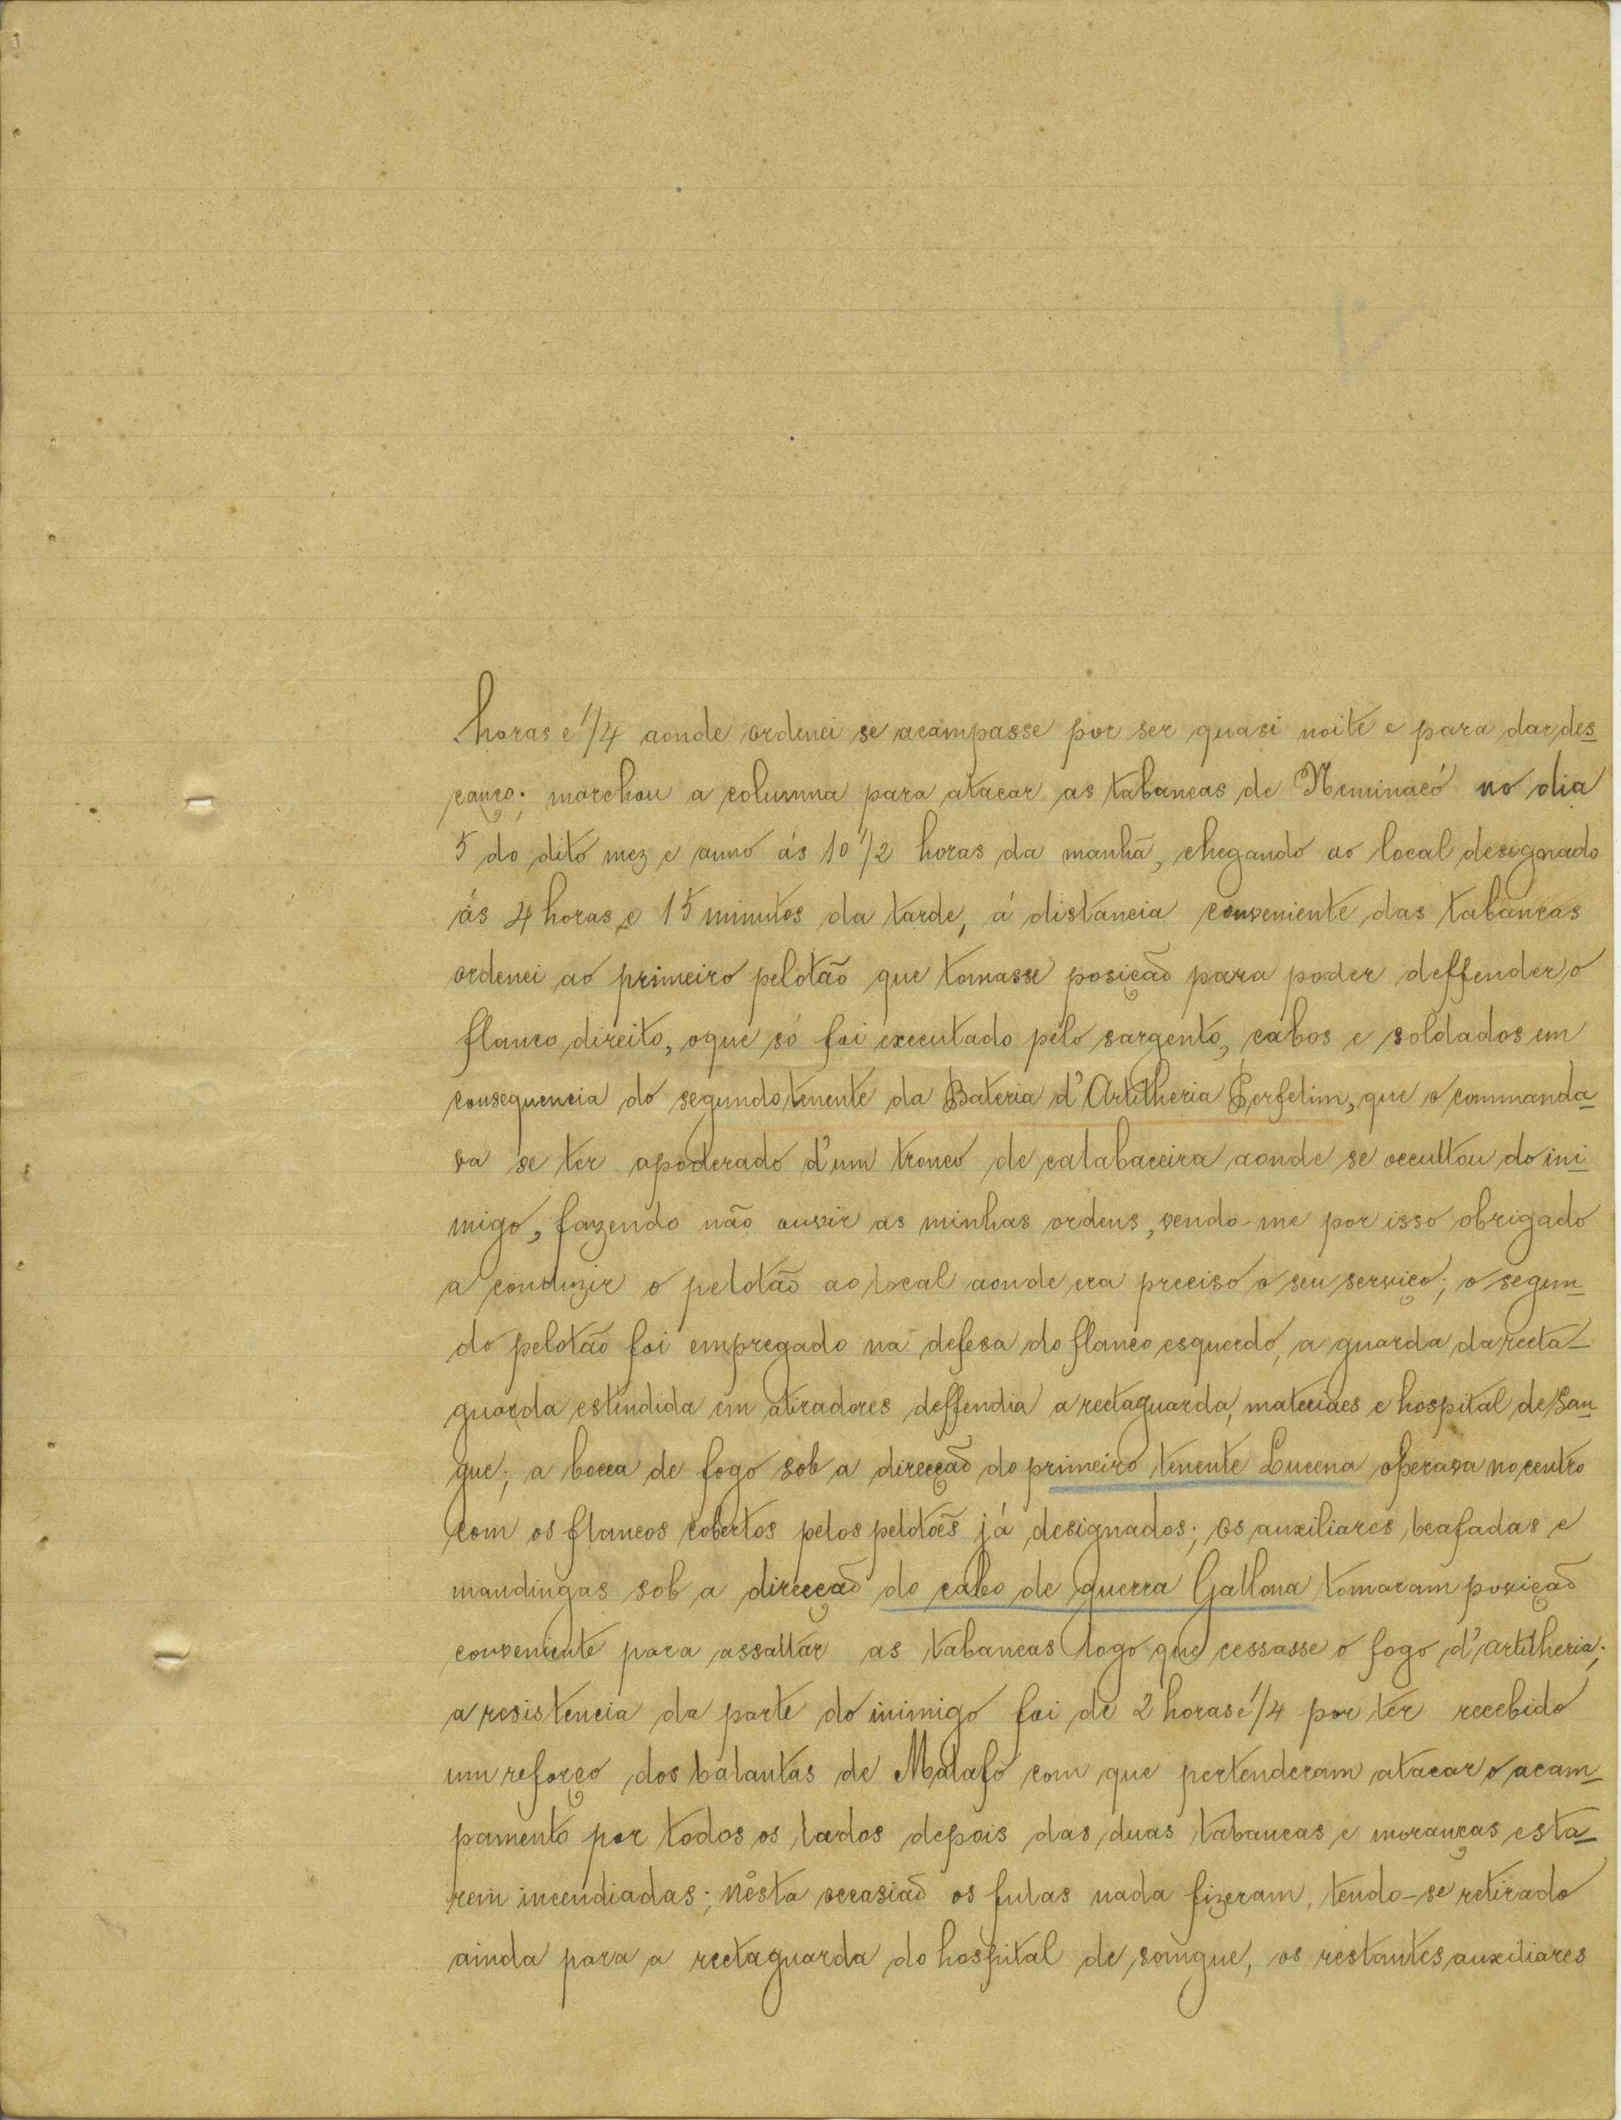 horas e 1/4 aonde ordenei se acampasse por ser quasi noite e para dar des-
canço; marchou a columna para atacar as tabancas de Neminacó no dia
5 do dito mez e anno ás 10 1/2 horas da manhã, chegando ao local designado
ás 4 horas e 15 minutos da tarde, á distancia conveniente das tabancas
ordenei ao primeiro pelotão que tomasse posição para poder deffender o
flanco direito, oque só foi executado pelo sargento, cabos e soldados em
consequencia do segundo tenente da Bateria d'Artilheria Serfelim, que o commanda-
va se ter apoderado d'um tronco de calabaceira aonde se occultou do ini-
migo, fazendo não ouvir as minhas ordens, vendo-me por isso obrigado
a conduzir o pelotão ao local aonde era preciso o seu serviço; o segun-
do pelotão foi empregado na defesa do flanco esquerdo, a guarda da recta-
guarda estindida em atiradores deffendia a rectaguarda, materiaes e hospital de san-
gue; a bocca de fogo sob a direcção do primeiro tenente Lucena operava no centro
com os flancos cobertos pelos pelotoẽs já designados; os auxiliares beafadas e
mandingas sob a direcção do cabo de guerra Gallona tomaram posição
conveniente para assaltar as tabancas logo que cessasse o fogo d'artilheria;
a resistencia da parte do inimigo foi de 2 horas e 1/4 por ter recebido
um reforço dos balantas de Malafo com que pertenderam atacar o acam-
pamento por todos os lados depois das duas tabancas e moranças esta-
rem incendiadas; nésta occasião os fulas nada fizeram, tendo-se retirado
ainda para a rectaguarda do hospital de sangue, os restantes auxiliares